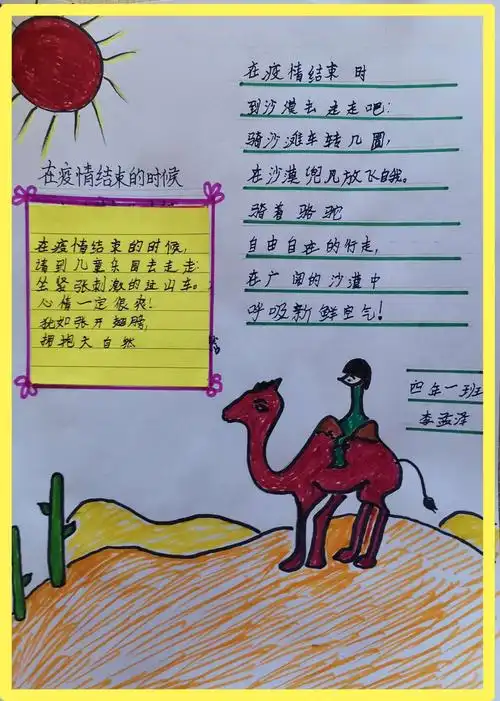 在疫情结束的时候
在疫情结束的时候,
请到儿童乐园去走走:
坐紧张刺激的过山车。
心情一定很爽!
犹如张开翅膀,
拥抱大自然
在疫情结束 时
到沙漠去 走走吧:
骑沙滩车转几圈,
在沙漠兜风放飞自我。
骑着 骆 驼
自由自在 的行走,
在广阔的沙漠中
呼吸新 鲜空气!
四年一班
李孟泽